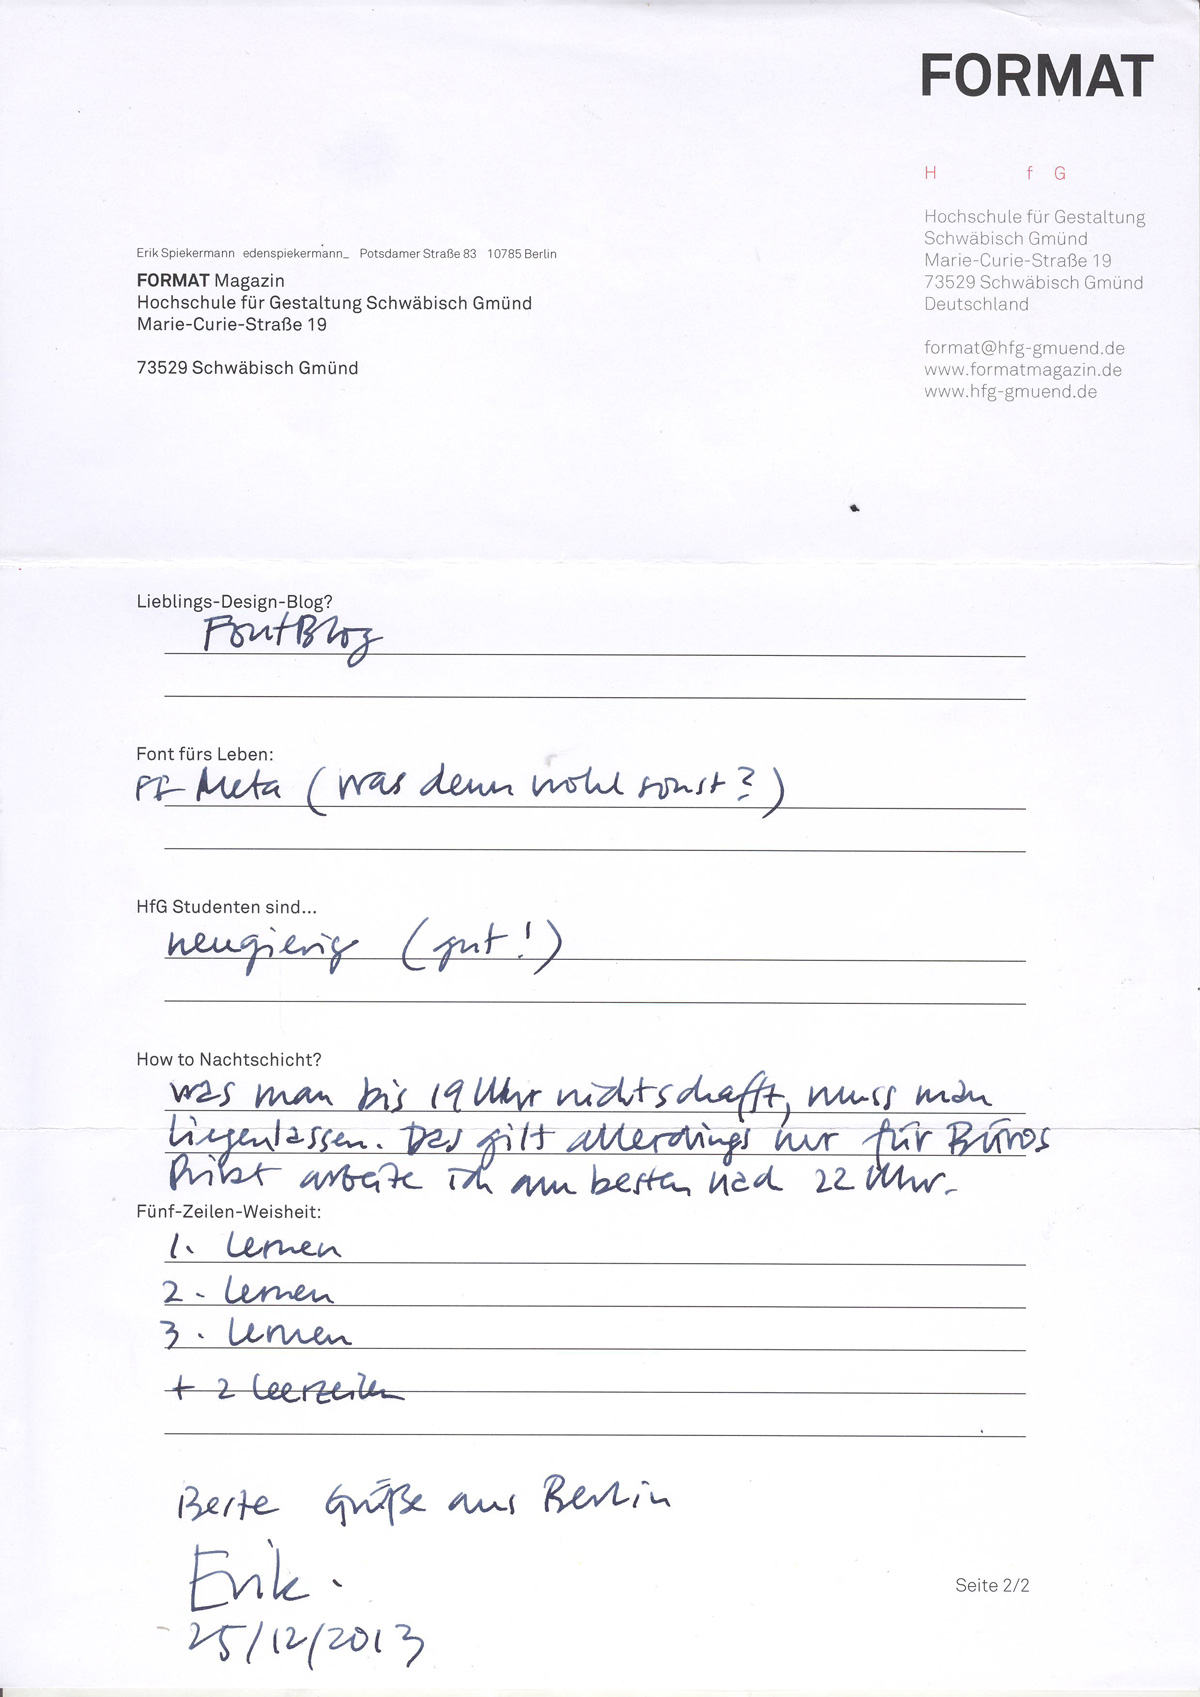 FORMAT
H f G
Hochschule für Gestaltung
Schwäbisch Gmünd
Marie-Curie-Straße 19
73529 Schwäbisch Gmünd
Deutschland
format@hfg-gmuend.de
www.formatmagazin.de
www.hfg-gmuend.de
Erik Spiekermann edenspiekermann_ Potsdamer Straße 83 10785 Berlin
FORMAT Magazin
Hochschule für Gestaltung Schwäbisch Gmünd
Marie-Curie-Straße 19
73529 Schwäbisch Gmünd
Lieblings-Design-Blog?
FontBlog
Font fürs Leben:
FF Meta (was denn wohl sonst?)
HfG Studenten sind...
neugierig (gut!)
How to Nachtschicht?
Was man bis 19 Uhr nicht schafft, muss man
liegenlassen. Das gilt allerdings nur für Büros
Privat arbeite ich am besten nach 22 Uhr.
Fünf-Zeilen-Weisheit:
1. Lernen
2. Lernen
3. Lernen
+ 2 Leerzeilen
Beste Grüße aus Berlin
Erik.
25/12/2013
Seite 2/2